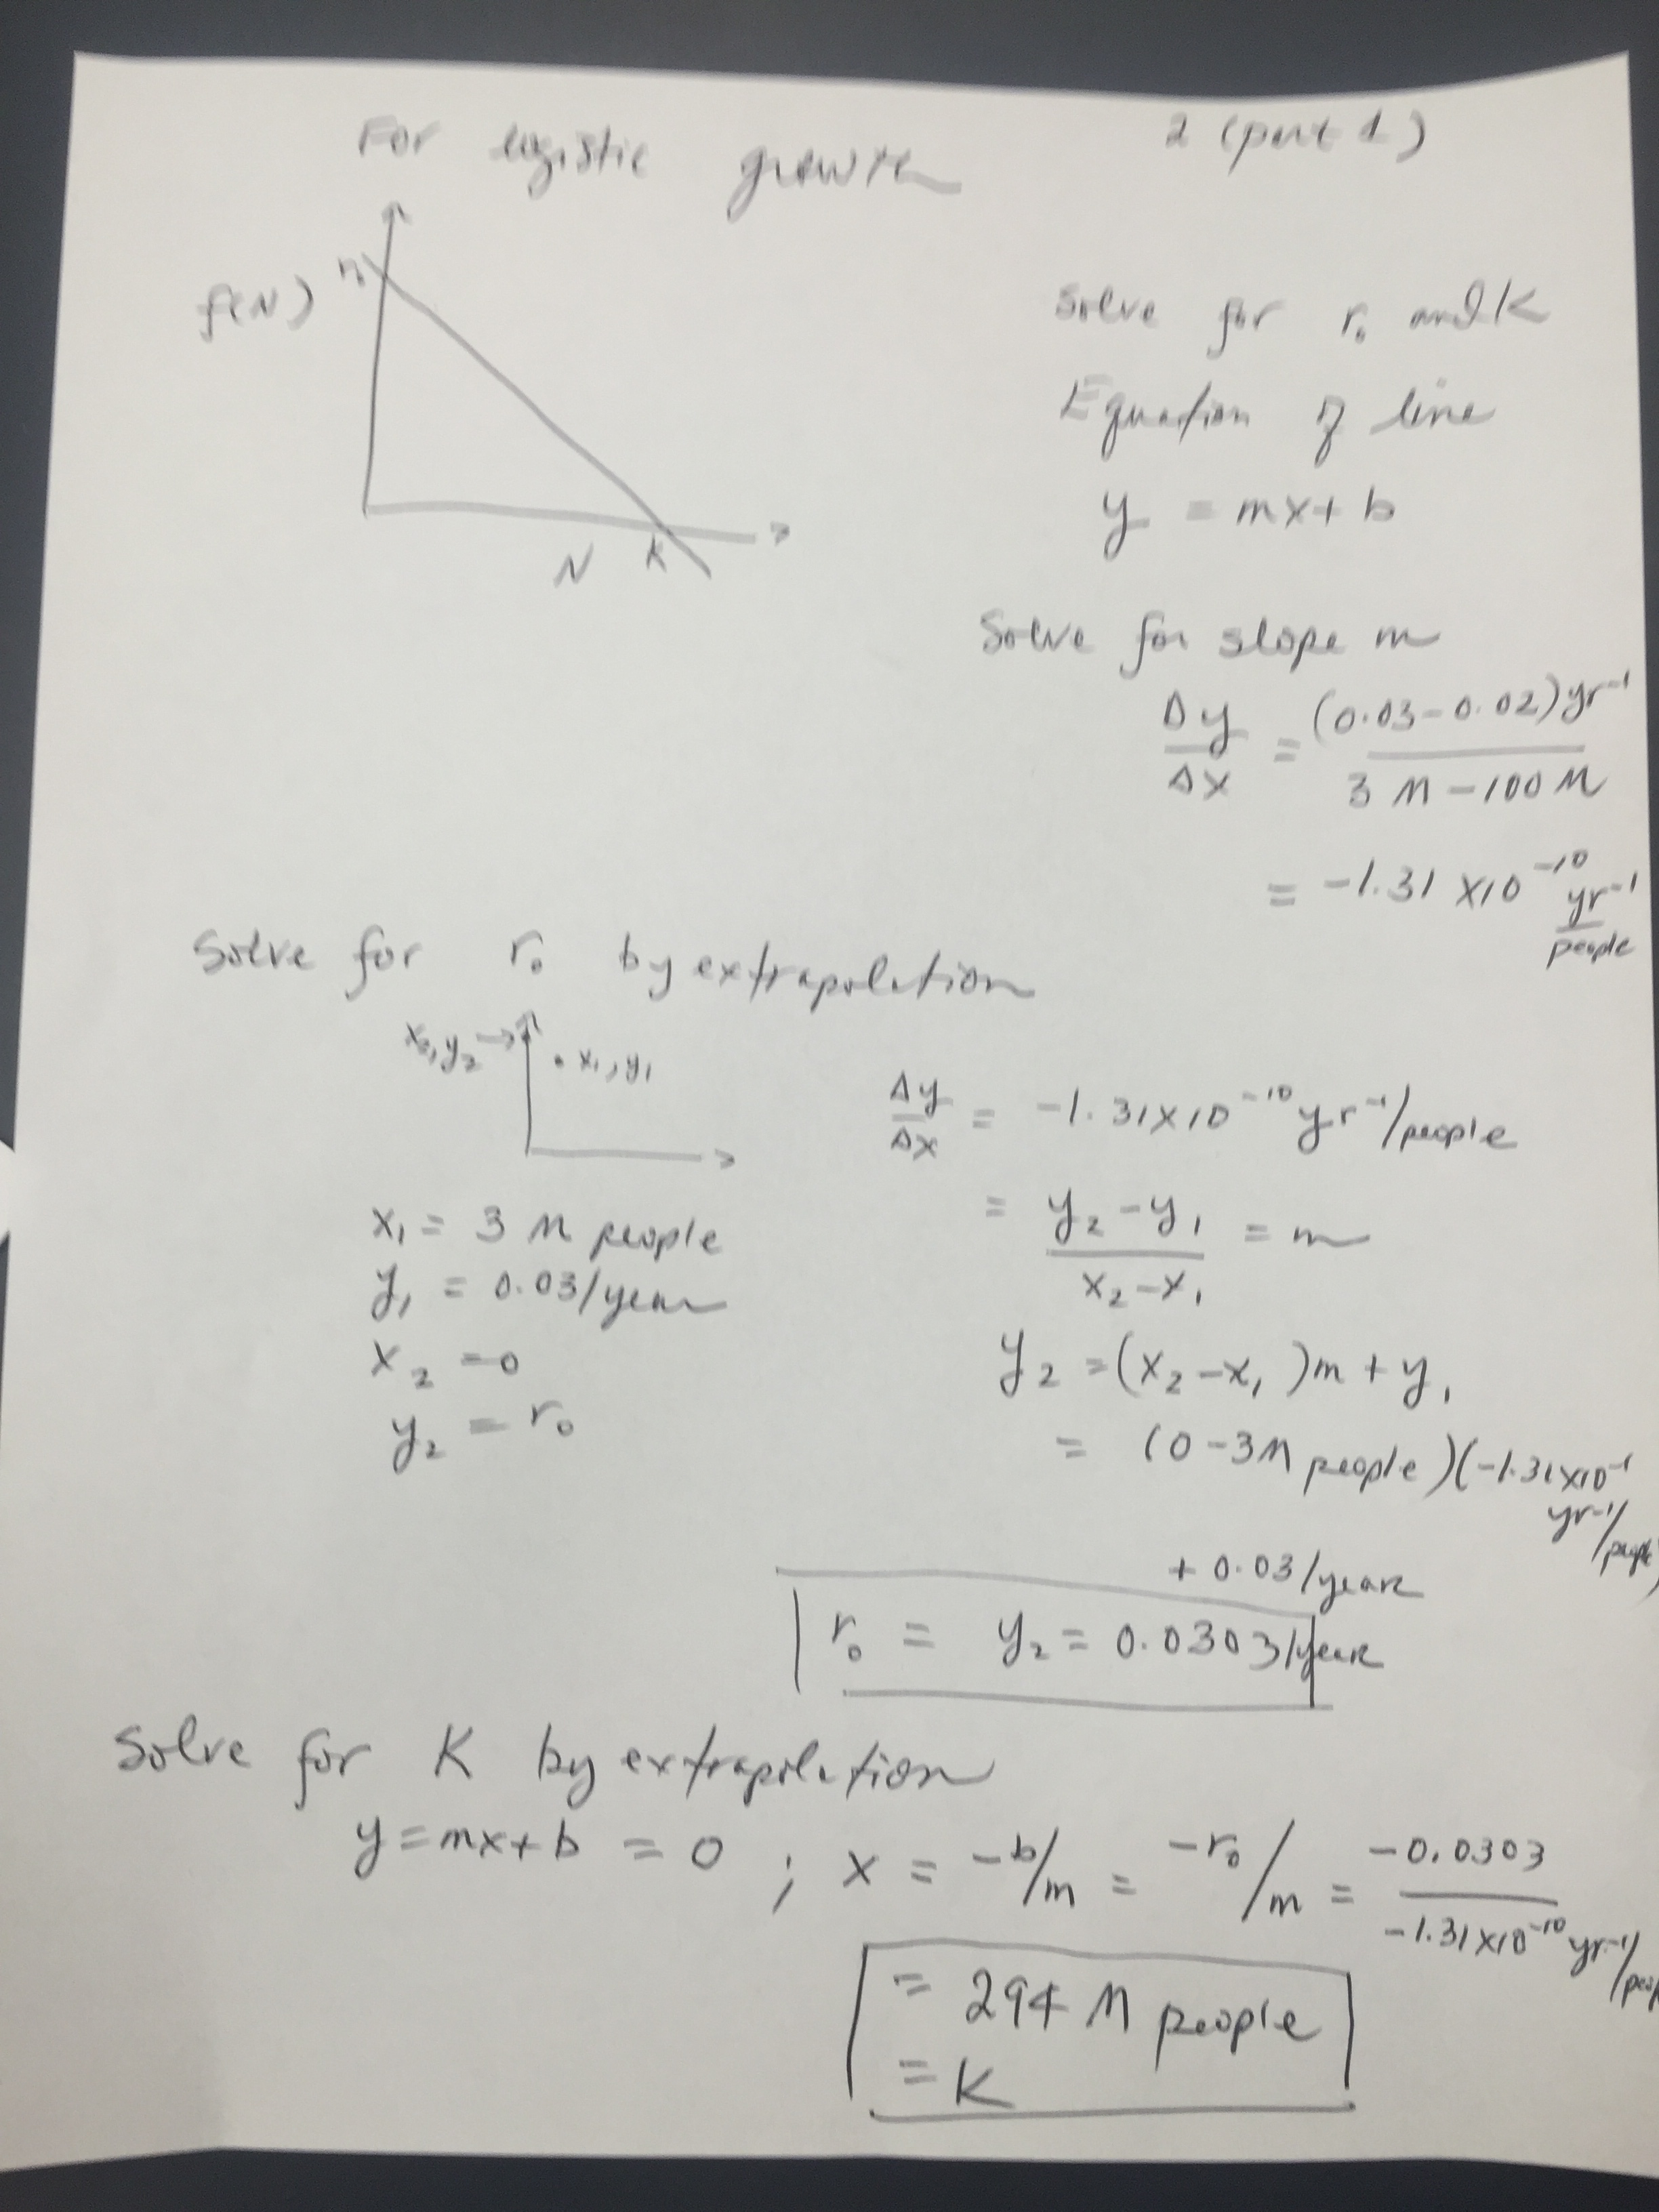 For logistic growth
2 (part 1)
f(N) r₀
N K
Solve for r₀ and K
Equation of line
y = mx + b
Solve for slope m
Δy/Δx = (0.03 - 0.02) yr⁻¹ / 3 M - 100 M
= -1.31 x 10⁻¹⁰ yr⁻¹/people
Solve for r₀ by extrapolation
x₂, y₂ →
• x₁, y₁
x₁ = 3 M people
y₁ = 0.03/year
x₂ = 0
y₂ = r₀
Δy/Δx = -1.31 x 10⁻¹⁰ yr⁻¹/people
= y₂ - y₁ / x₂ - x₁ = m
y₂ = (x₂ - x₁)m + y₁
= (0 - 3M people)(-1.31 x 10⁻¹
yr⁻¹/people)
+ 0.03/year
r₀ = y₂ = 0.0303/year
Solve for K by extrapolation
y = mx + b = 0 ; x = -b/m = -r₀/m = -0.0303 / -1.31 x 10⁻¹⁰ yr⁻¹/peop
= 294 M people
= K